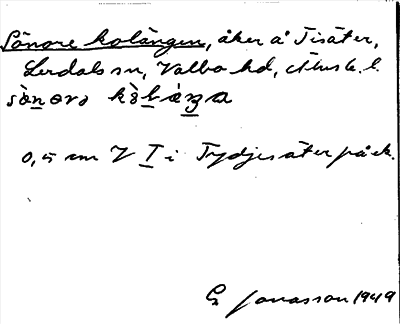 Sönore kolängen, åker å Tisäter,
Lerdals sn, Valbo hd, Älvsb. l.
0,5 cm V I i Tydjesäter på ek.
G Jonasson 1949